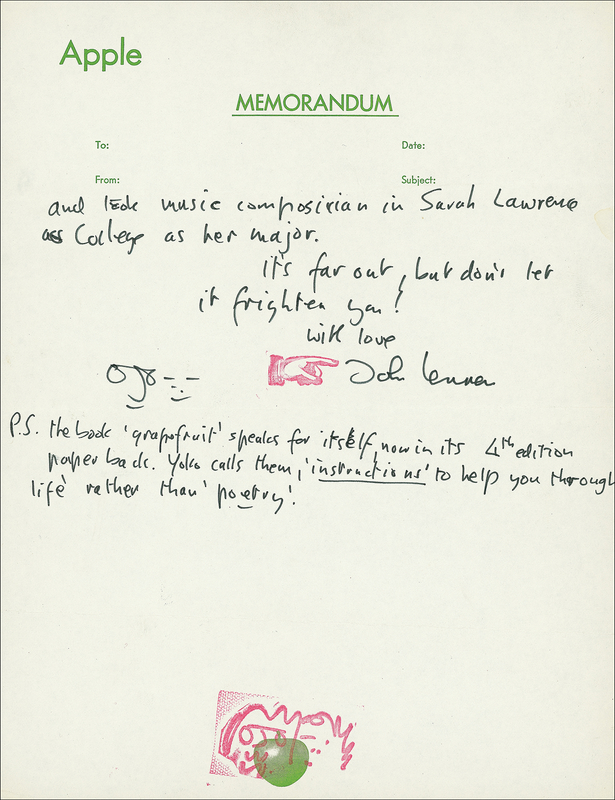 Apple
MEMORANDUM
To: Date:
From: Subject:
and music composirian in Sarah Lawrence
College as her major.
it's far out, but don't let
it frighten you!
with love
John Lennon
P.S. the book 'grapefruit' speaks for itself, now in its 4th edition
paperback. Yoko calls them, 'instructions' to help you through
life' rather than 'poetry'.